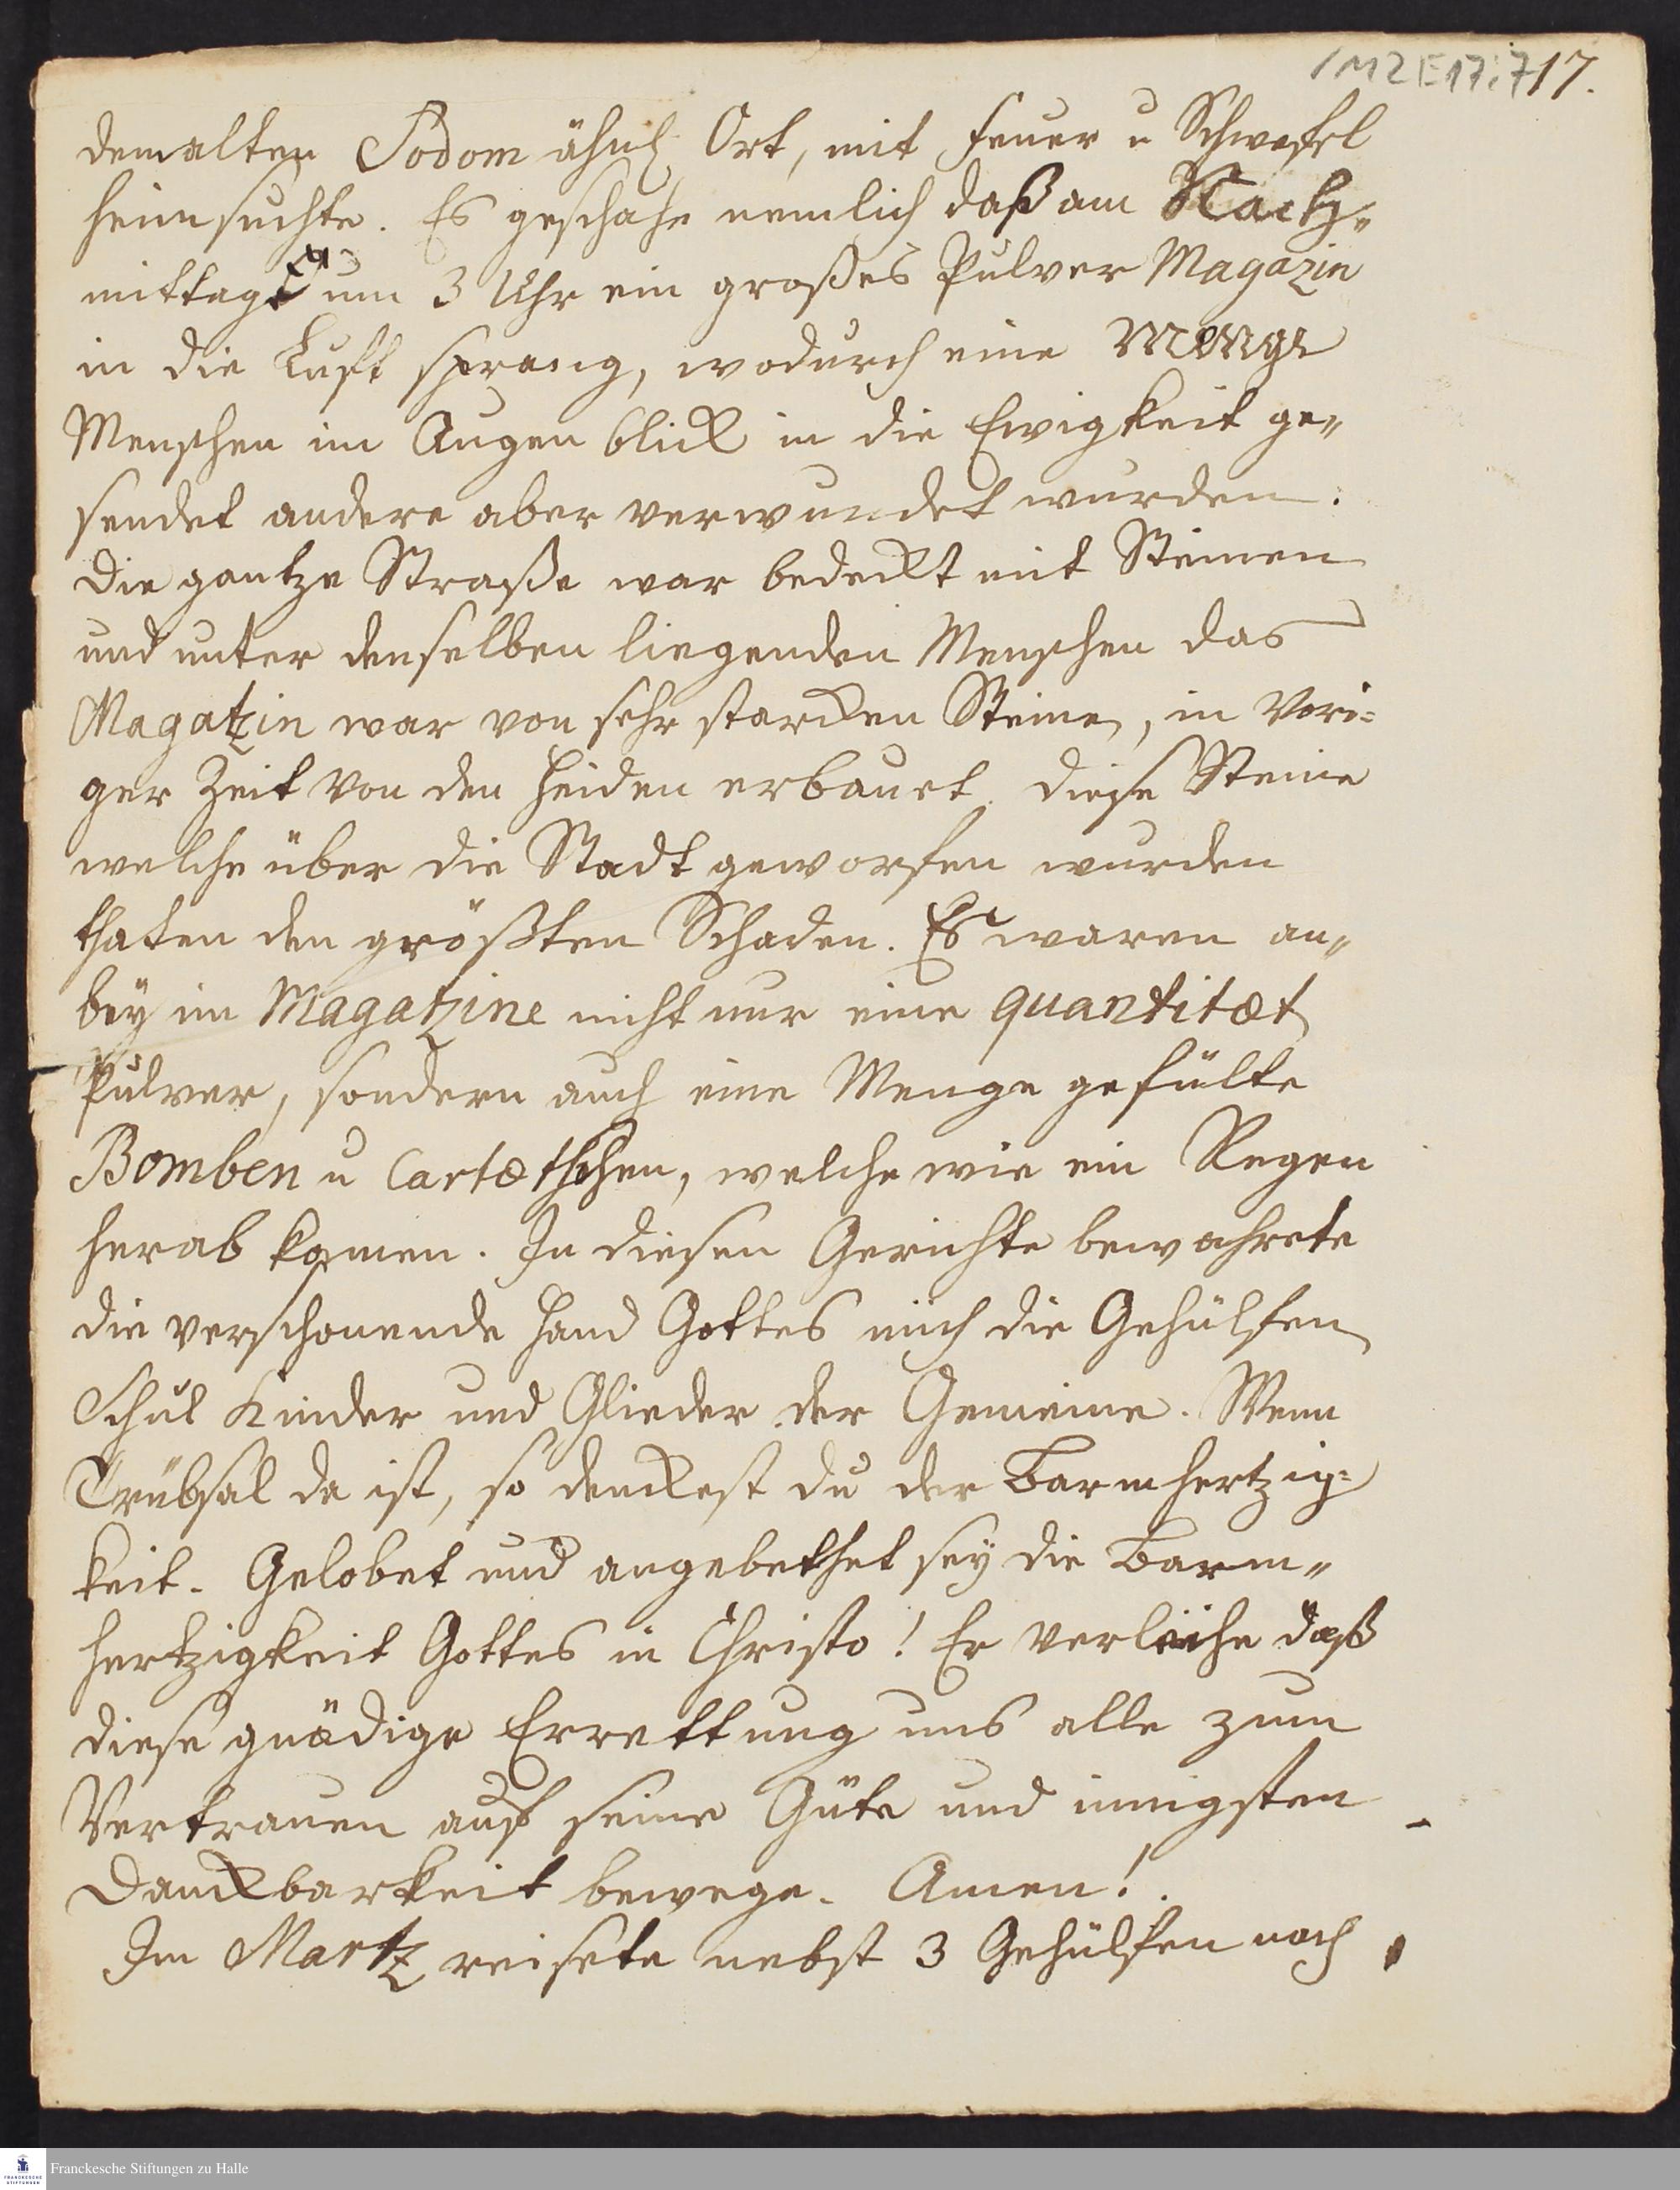 1M2E17:7 17.
dem alten Sodom ähnl. Ort, mit Feuer u Schwefel
heimsuchte. Es geschahe nemlich daß am Nach-
mittage um 3 Uhr ein großes Pulver Magazin
in die Luft sprang, wodurch eine Menge
Menschen im Augenblick in die Ewigkeit ge-
sendet andere aber verwundet wurden.
die gantze Straße war bedeckt mit Steinen
und unter denselben liegenden Menschen das
Magatzin war von sehr starcken Steinen, in vori-
ger Zeit von den Heiden erbauet. diese Steine
welche über die Stadt geworfen wurden
thaten den größten Schaden. Es waren an-
bey im Magatzine nicht nur eine quantitæt
Pulver, sondern auch eine Menge gefülte
Bomben u Cartætschen, welche wie ein Regen
herab kamen. In diesen Gerichte bewahrete
die verschonende Hand Gottes mich die Gehülfen
Schul Kinder und Glieder der Gemeine. Wenn
Trübsal da ist, so denckest du der Barmhertzig-
keit. Gelobet und angebethet sey die Barm-
hertzigkeit Gottes in Christo! Er verleihe daß
diese gnädige Errettung uns alle zum
Vertrauen auf seine Güte und innigsten
Danckbarkeit bewege. Amen!
Im Martz reisete nebst 3 Gehülfen nach
FRANCKESCHE
STIFTUNGEN
Franckesche Stiftungen zu Halle